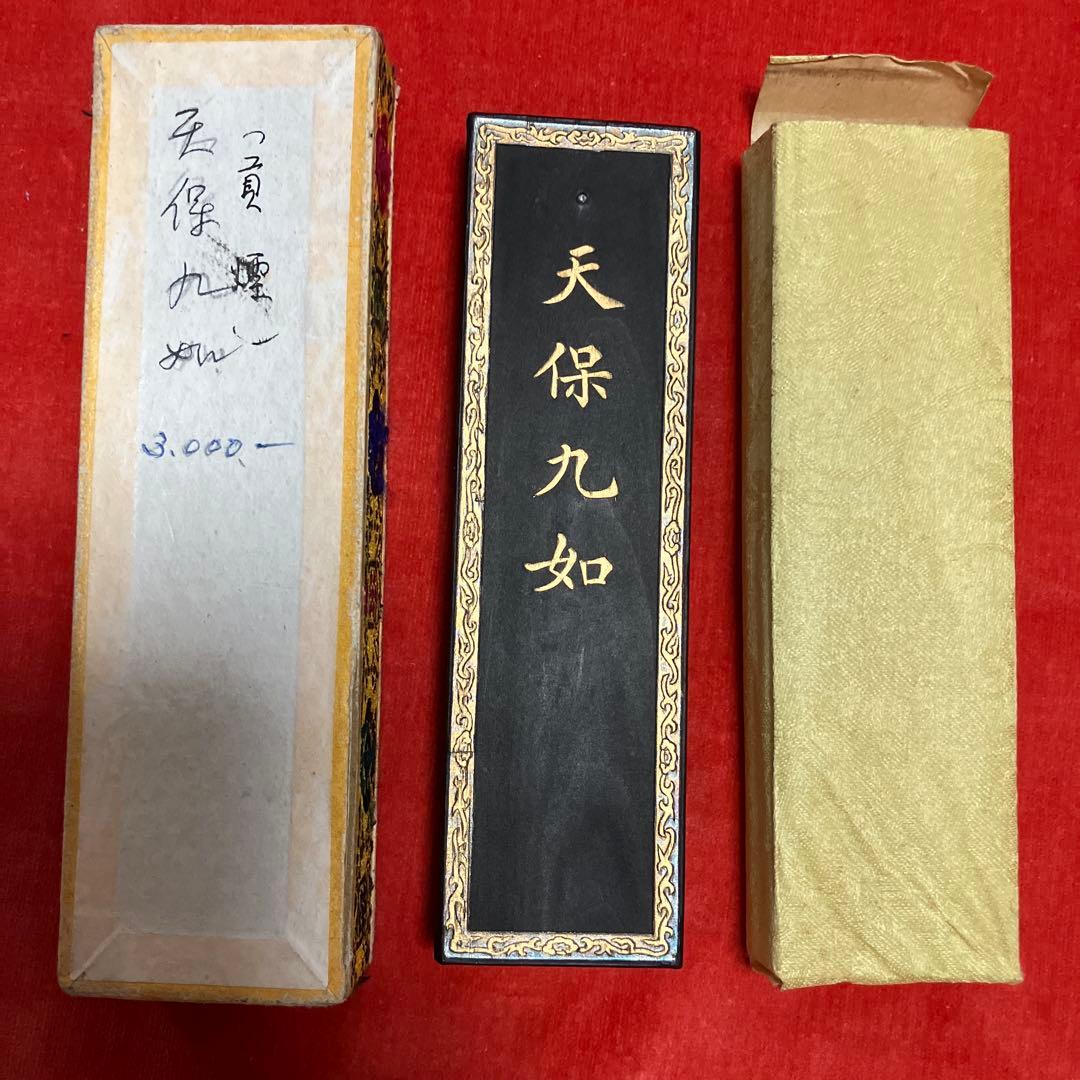 天保九如
「貢煙」
3.000.—
天保九如